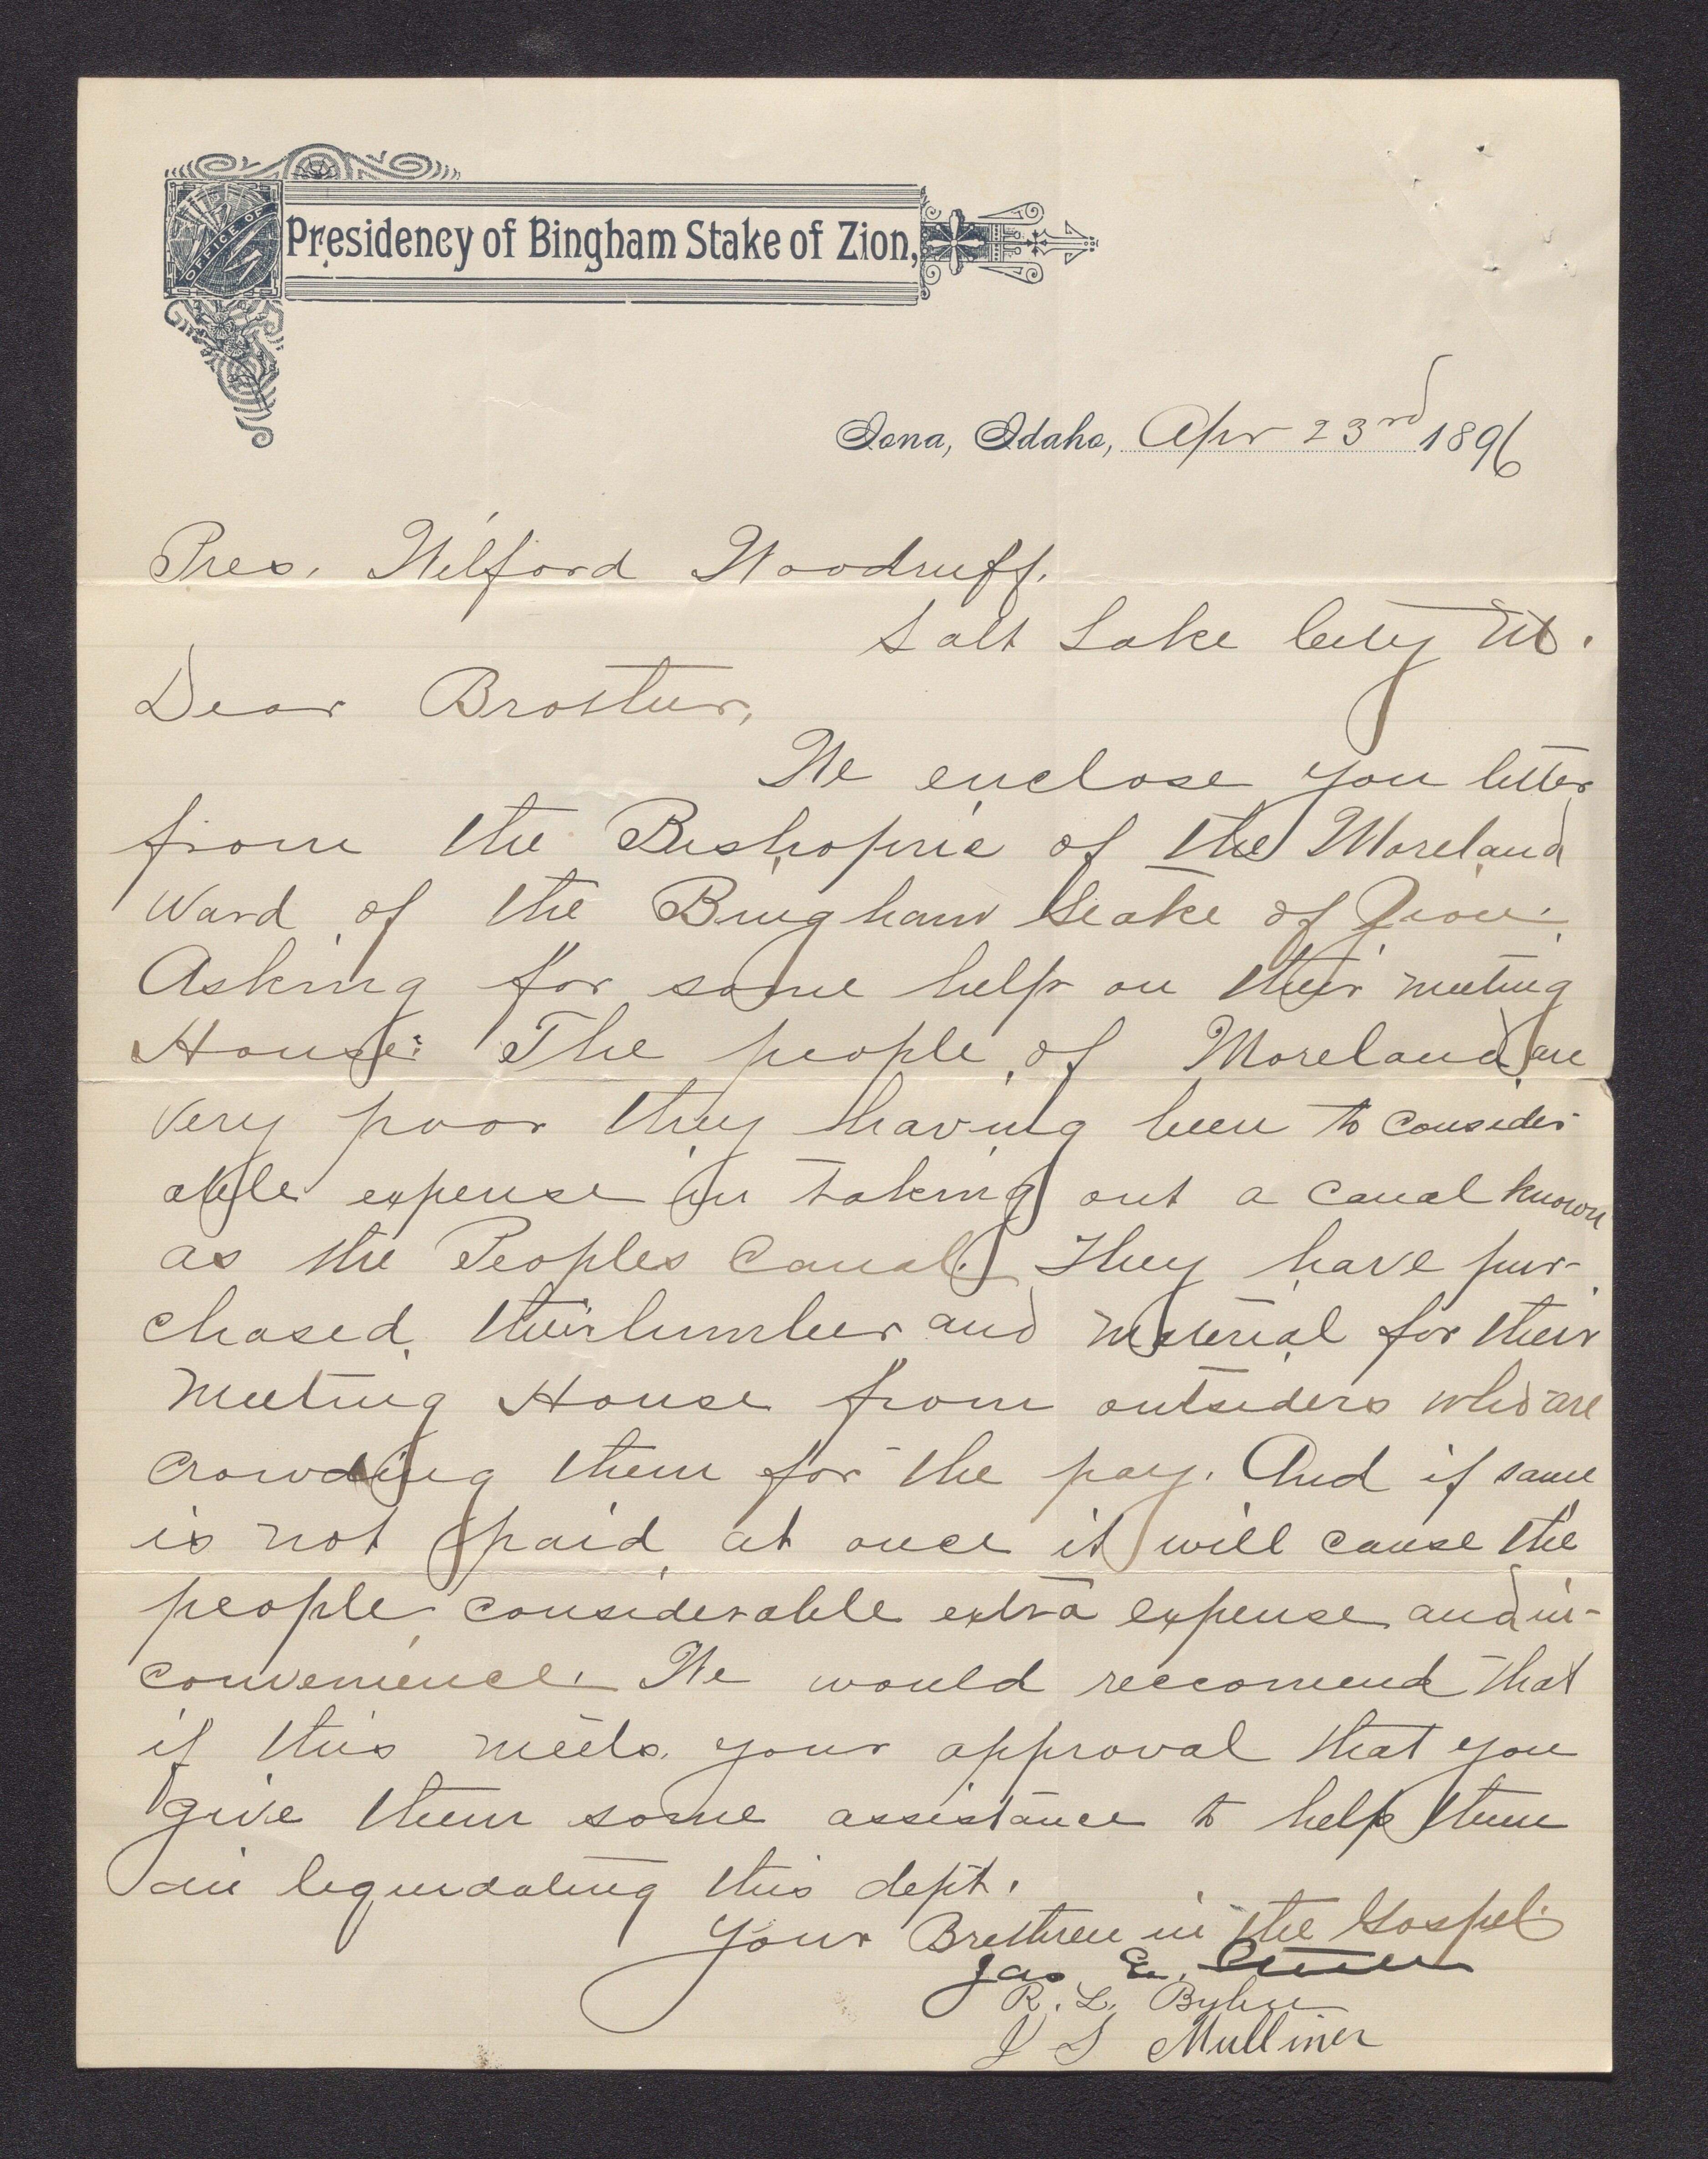 OFFICE OF
Presidency of Bingham Stake of Zion,
Iona, Idaho, Apr 23rd 1896
Pres. Wilford Woodruff.
Salt Lake City Ut.
Dear Brother,
We enclose you letter
from the Bishopric of the Moreland
Ward of the Bingham Stake of Zion.
Asking for some help on their meeting
House: The people of Moreland are
very poor they having been to consider-
able expense in taking out a canal known
as the Peoples Canal. They have pur-
chased their lumber and material for their
Meeting House from outsiders who are
crowding them for the pay. And if same
is not paid at once it will cause the
people considerable extra expense and in-
convenience. We would reccomend that
if this meets your approval that you
give them some assistance to help them
in liquidating this dept.
Your Brethren in the Gospel.
Jas. E. Steele
R. L. Bybee
J S Mulliner